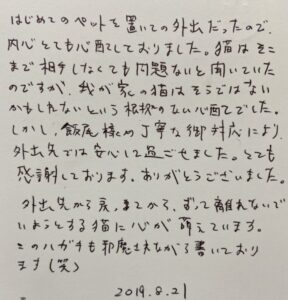 はじめてのペットを置いての外出だったので、
内心とても心配しておりました。猫はそこ
まで相手しなくても問題ないと聞いていた
のですが、我が家の猫はそうではない
かもしれないという根拠のない心配でした。
しかし、飯尾様の丁寧な御対応により、
外出先では安心して過ごせました。とても
感謝しております。ありがとうございました。
外出先から戻ってから、ずっと離れないで
いようとする猫に心が萌えています。
このハガキも邪魔されながら書いており
ます(笑)
2019.8.21